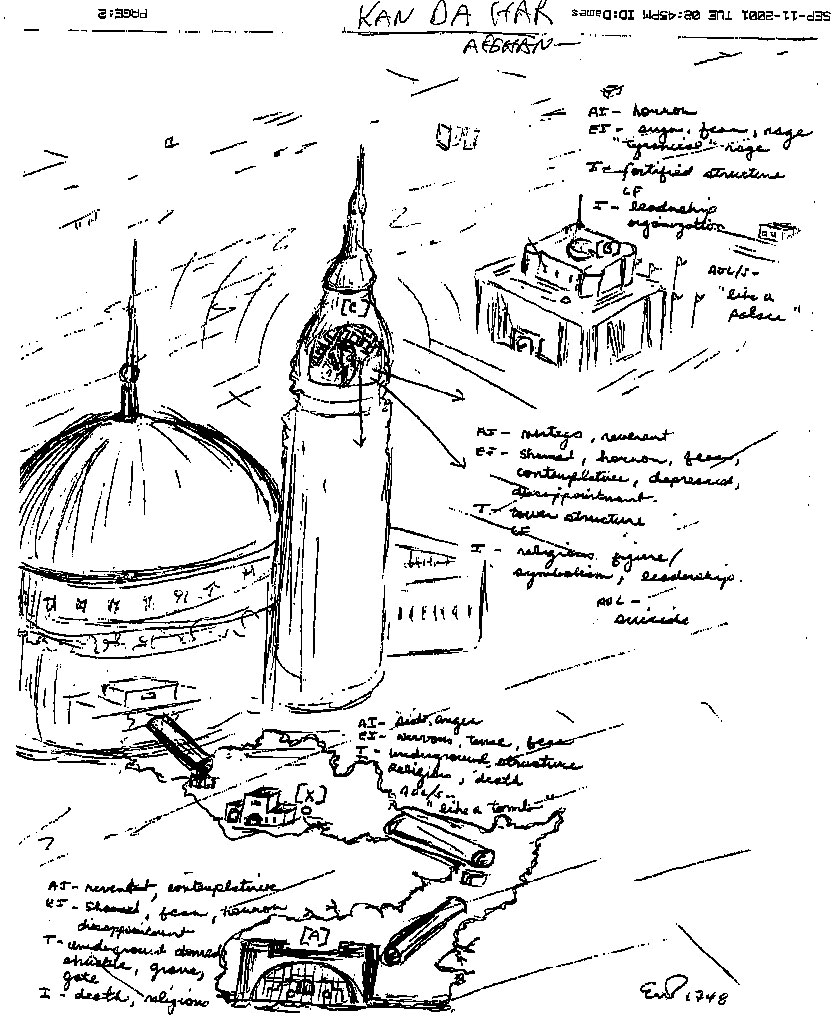 SEP-11-2001 TUE 08:45PM ID:Dames
PAGE:2
KAN DA HAR
AFGHAN
AI - horror
EI - anger, fear, rage
"tyranical" rage
T - fortified structure
LF
I - leadership
organization
[B]
AOL/S -
"like a
palace"
[C]
AI - reverent
EI - shamed, horror, fear,
contemplative, depressed,
disappointment.
T - tower structure
LF
I - religious figure/
symbolism, leadership.
AOL -
suicide
AI - anger
EI - nervous, tense, fear
T - underground structure
Religious, death
AOL/S -
"like a tomb"
[X]
AI - reverent, contemplative
EI - shamed, fear, horror
disappointment
T - underground domed
structure, grave,
gate
I - death, religious
[A]
1748